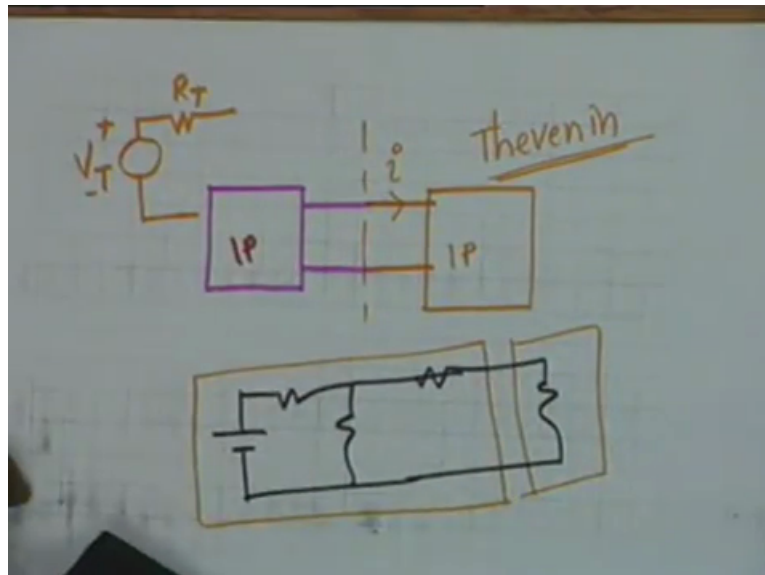 R_T
+
V_T
-
i
Thevenin
1P
1P